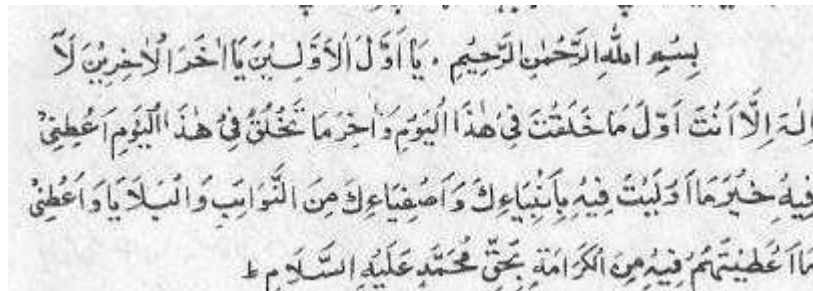 بِسْمِ اللهِ الرَّحْمٰنِ الرَّحِيْمِ . يَا اَوَّلَ الْاَوَّلِيْنَ يَا اٰخَرَ الْاٰخِرِيْنَ لَآ
اِلٰهَ اِلَّا اَنْتَ اَوَّلَ مَا خَلَقْتَ فِيْ هٰذَا الْيَوْمِ وَاٰخِرَ مَا تَخْلُقُ فِيْ هٰذَا الْيَوْمِ اَعْطِنِيْ
فِيْهِ خَيْرَ مَا اَوْلَيْتَ فِيْهِ بِاَنْبِيَاءِكَ وَاَصْفِيَاءِكَ مِنَ النَّوَاىِٕبِ وَالْبَلَايَا وَاَعْطِنِيْ
مَا اَعْطَيْتَهُمْ فِيْهِ مِنَ الْكَرَامَةِ بِحَقِّ مُحَمَّدٍ عَلَيْهِ السَّلَامِ ط